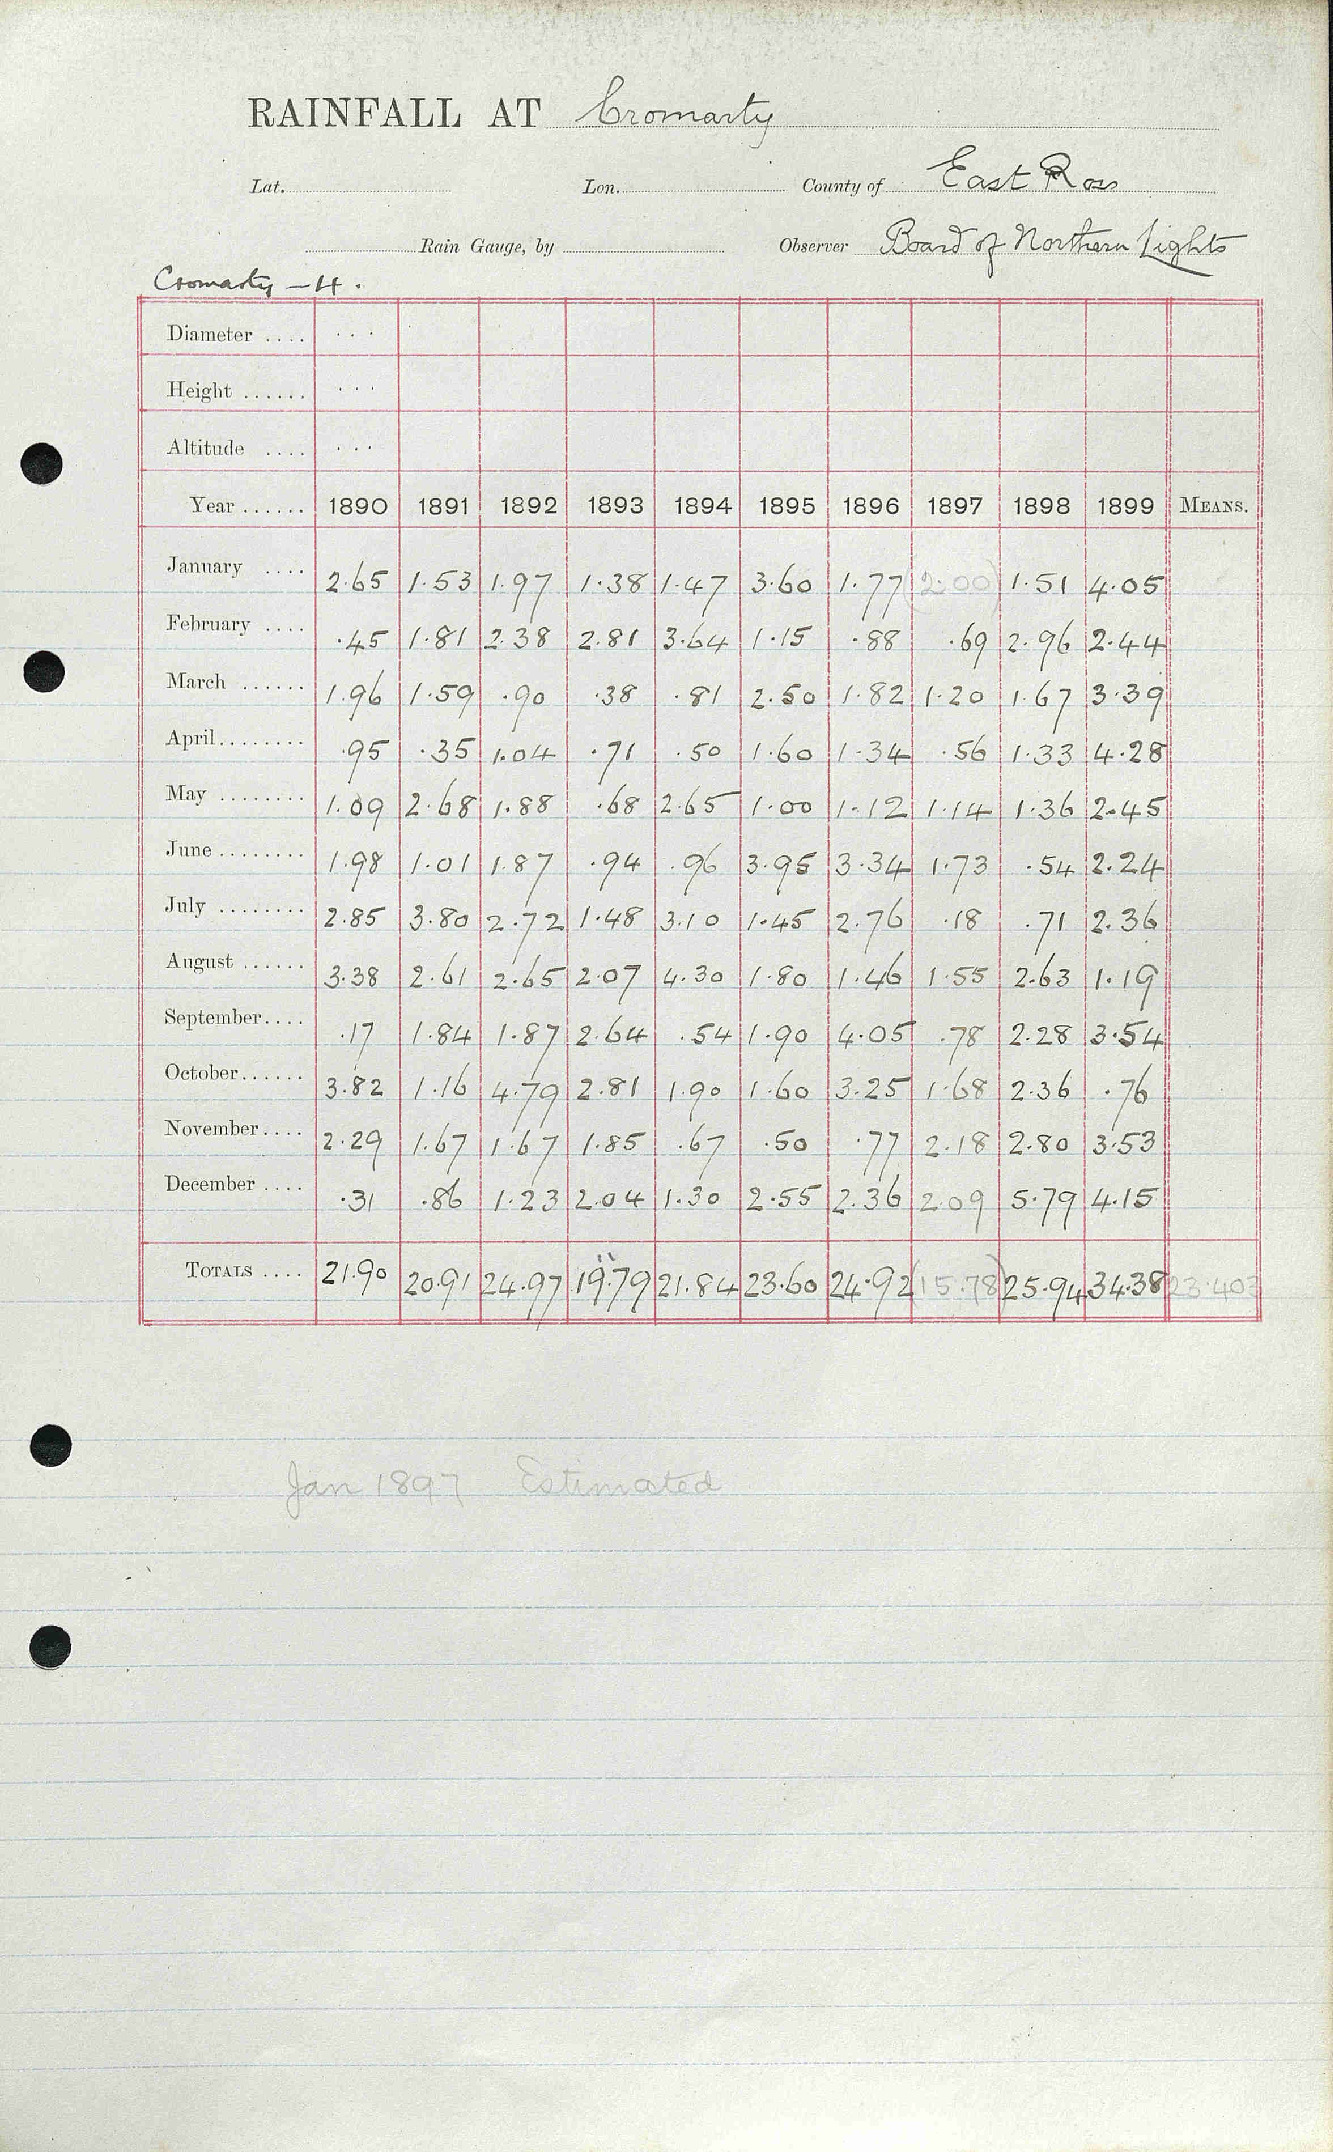 RAINFALL AT Cromarty
Lat. Lon. County of East Ross
Rain Gauge, by Observer Board of Northern Lights
Cromarty – H.
Diameter .... ...
Height ...... ...
Altitude .... ...
Year ...... 1890 1891 1892 1893 1894 1895 1896 1897 1898 1899 MEANS.
January .... 2.65 1.53 1.97 1.38 1.47 3.60 1.77 (2.00) 1.51 4.05
February .... .45 1.81 2.38 2.81 3.64 1.15 .88 .69 2.96 2.44
March ...... 1.96 1.59 .90 .38 .81 2.50 1.82 1.20 1.67 3.39
April........ .95 .35 1.04 .71 .50 1.60 1.34 .56 1.33 4.28
May ........ 1.09 2.68 1.88 .68 2.65 1.00 1.12 1.14 1.36 2.45
June ........ 1.98 1.01 1.87 .94 .96 3.95 3.34 1.73 .54 2.24
July ........ 2.85 3.80 2.72 1.48 3.10 1.45 2.76 .18 .71 2.36
August ...... 3.38 2.61 2.65 2.07 4.30 1.80 1.46 1.55 2.63 1.19
September.... .17 1.84 1.87 2.64 .54 1.90 4.05 .78 2.28 3.54
October...... 3.82 1.16 4.79 2.81 1.90 1.60 3.25 1.68 2.36 .76
November.... 2.29 1.67 1.67 1.85 .67 .50 .77 2.18 2.80 3.53
December .... .31 .86 1.23 2.04 1.30 2.55 2.36 2.09 5.79 4.15
TOTALS .... 21.90 20.91 24.97 19.79 21.84 23.60 24.92 (15.78) 25.94 34.38 23.403
Jan 1897 Estimated